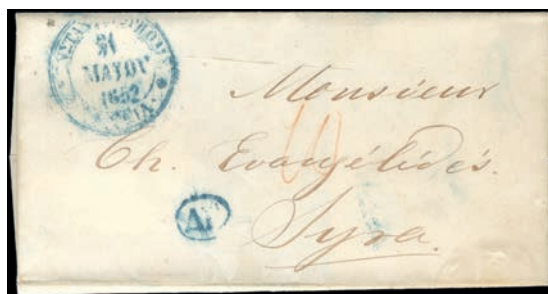 21
ΜΑΪΟΥ
1852
Monsieur
10
Ch. Evangélidés.
Syra.